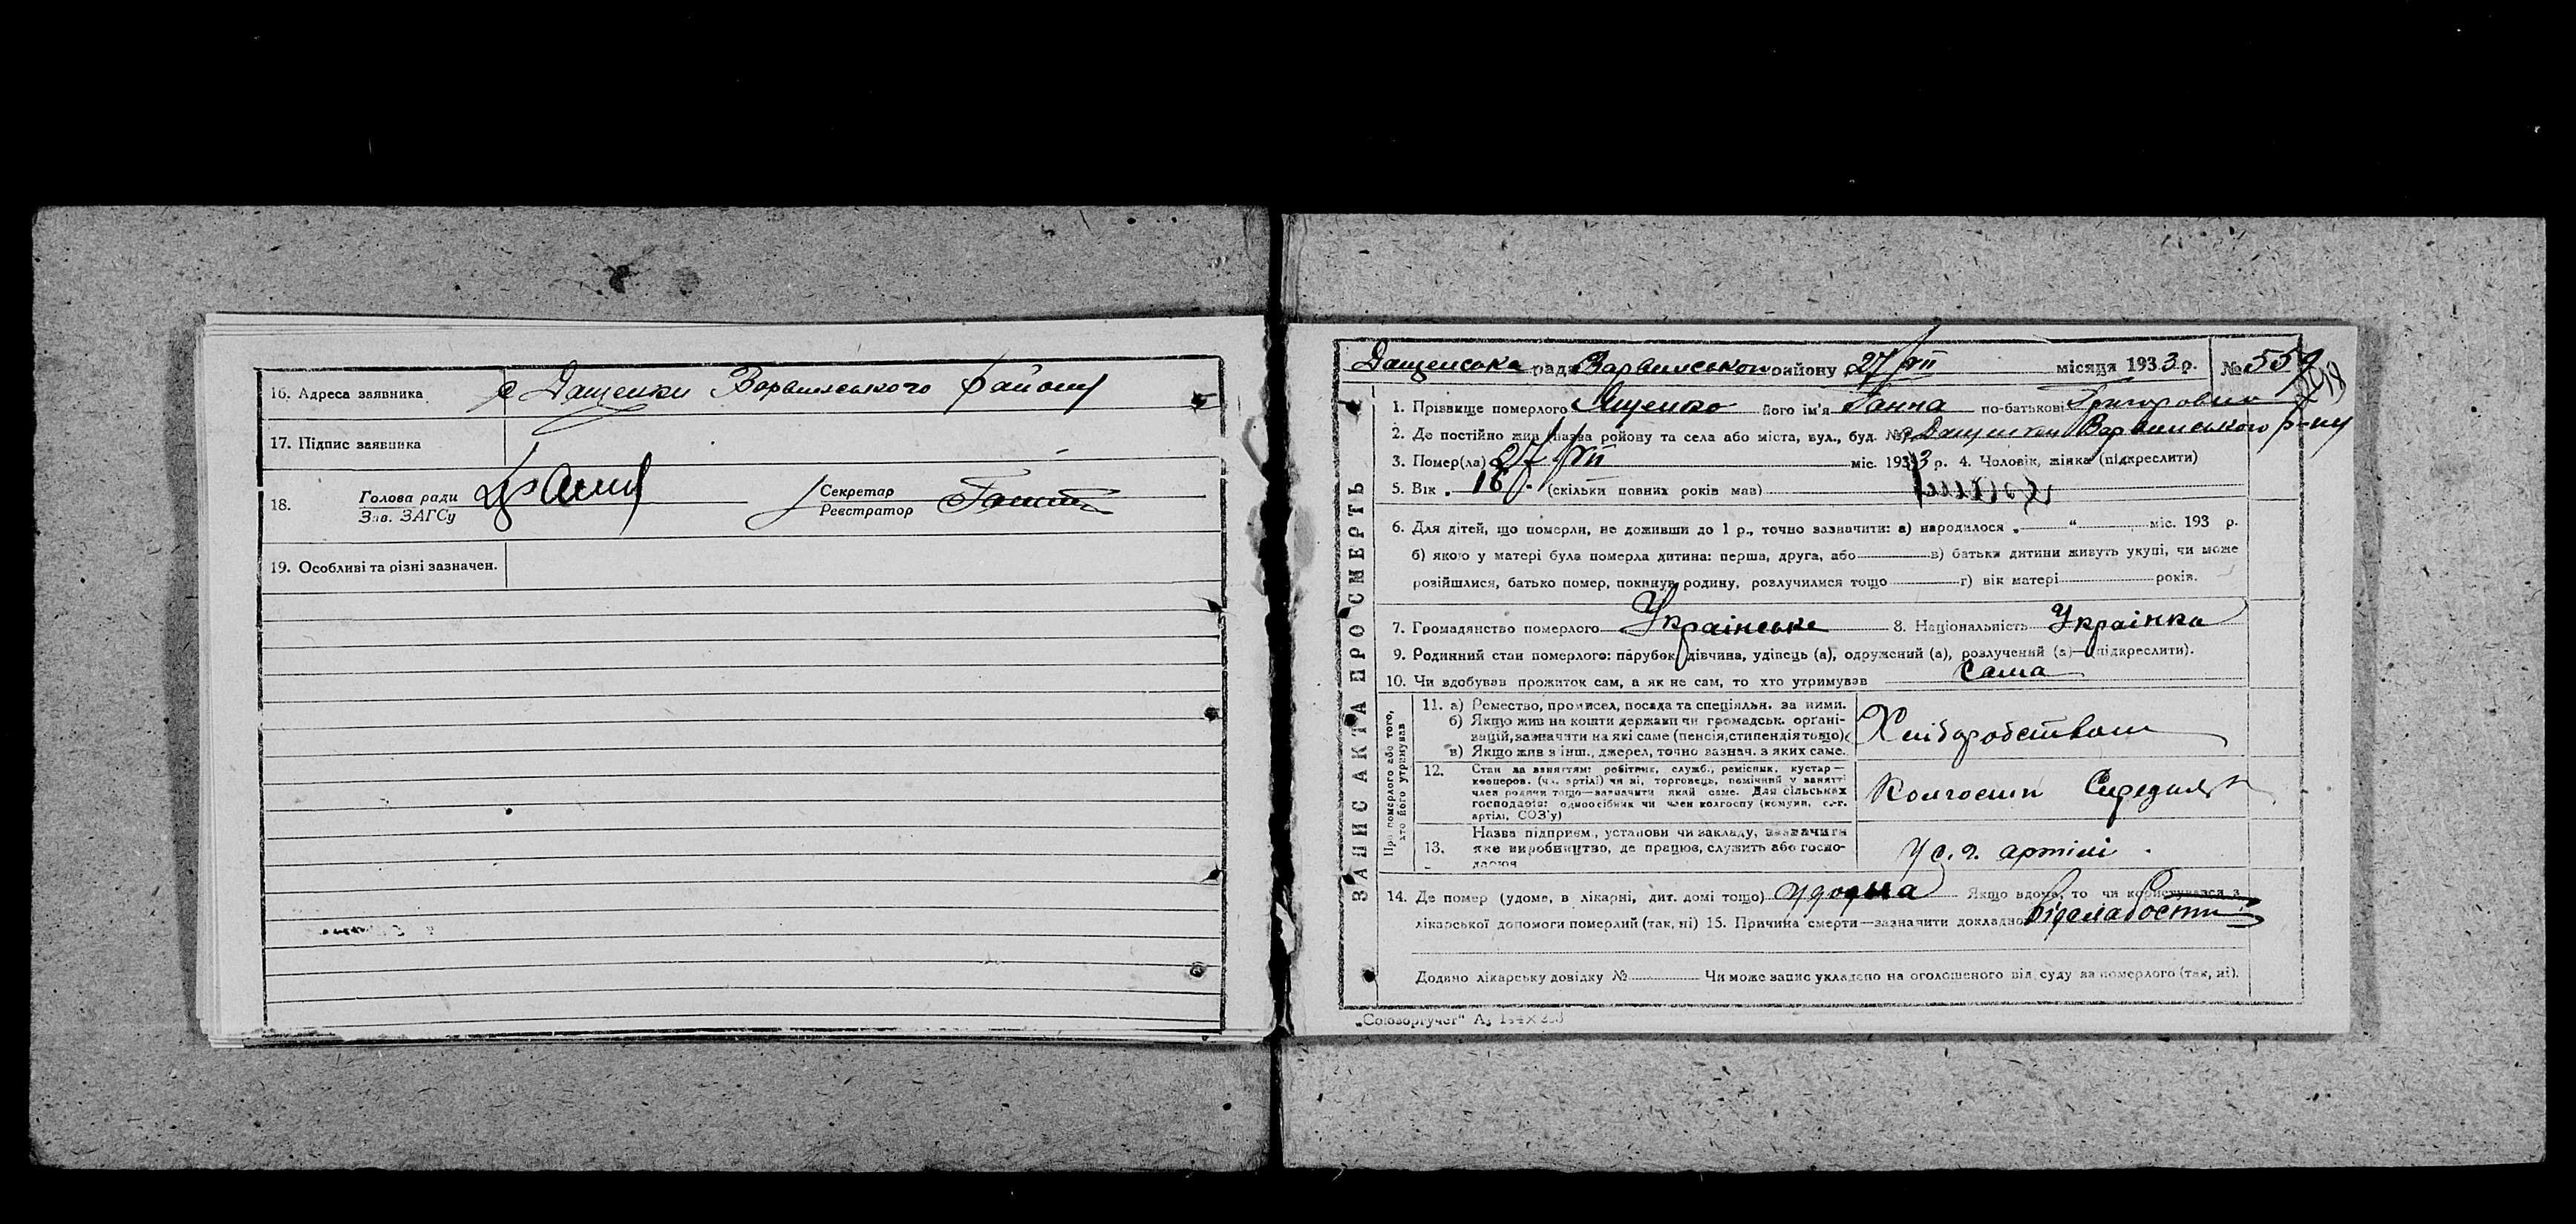 16. Адреса заявника с Дащенки Варвинського району
17. Підпис заявника
18. Голова ради
Зав. ЗАГСу
Секретар
Реєстратор
19. Особливі та різні зазначен.
ЗАПИС АКТА ПРО СМЕРТЬ
Дащенська рада Варвинського району 27/VII місяця 1933 р. № 559
1. Прізвище померлого Ященко його ім'я Ганна по-батькові Григоровна
2. Де постійно жив (назва району та села або міста, вул., буд. № с Дащенки Варвинського р-ну
3. Помер(ла) 27/VII міс. 1933 р. 4. Чоловік, жінка (підкреслити)
5. Вік 18 р. (скільки повних років мав)
6. Для дітей, що померли, не доживши до 1 р., точно зазначити: а) народилося „ “ міс. 193 р.
б) якою у матері була померла дитина: перша, друга, або в) батьки дитини живуть укупі, чи може
розійшлися, батько помер, покинув родину, розлучилися тощо г) вік матері років.
7. Громадянство померлого Українське 8. Національність Українка
9. Родинний стан померлого: парубок, дівчина, удівець (а), одружений (а), розлучений (а)—(підкреслити).
10. Чи здобував прожиток сам, а як не сам, то хто утримував сама
Про померлого або того,
хто його утримував
11. а) Ремество, промисел, посада та спеціяльн. за ними.
б) Якщо жив на кошти держави чи громадськ. органі-
зацій, зазначити на які саме (пенсія, стипендія тощо)
в) Якщо жив з інш. джерел, точно зазнач. з яких саме.
Хліборобством
12. Стан за заняттям: робітник, служб., ремісник, кустар—
кооперов. (чл. артілі) чи ні, торговець, помічний у занятті
член родини тощо—зазначити який саме. Для сільських
господарів: одноосібник чи член колгоспу (комуни, с.-г.
артілі, СОЗ'у)
Колгоспн Середняк
13. Назва підприєм., установи чи закладу, зазначити
яке виробництво, де працює, служить або госпо-
дарює
У с. г. артілі
14. Де помер (удома, в лікарні, дит. домі тощо) удома Якщо вдома, то чи користувався з
лікарської допомоги померлий (так, ні) 15. Причина смерти—зазначити докладно від слабости
Додано лікарську довідку № Чи може запис укладено на оголошеного від суду за померлого (так, ні).
„Союзоргучет“